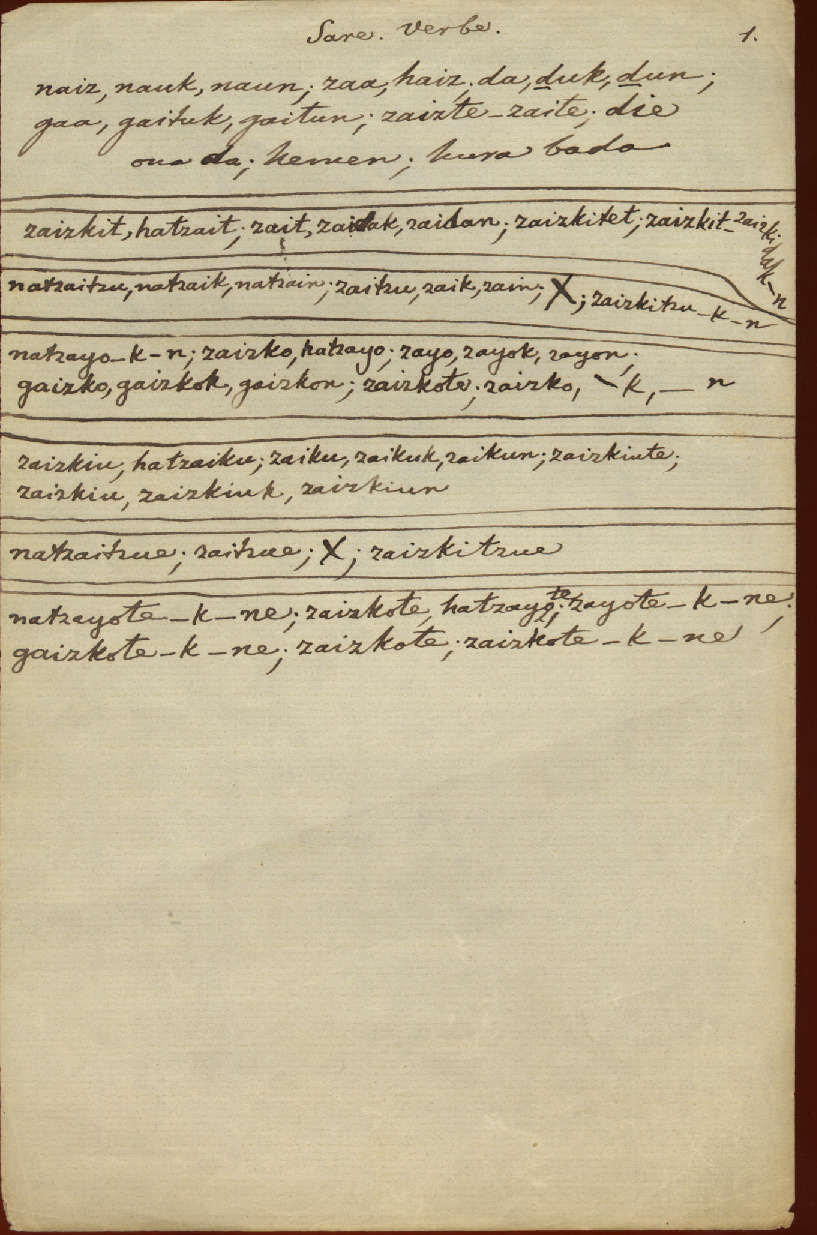 Sare. Verbe. 1.
naiz, nauk, naun; zaa, haiz; da, duk, dun;
gaa, gaituk, gaitun; zaizte_zaite; die
ona da; hemen; hura bada
zaizkit, hatzait; zait, zaidak, zaidan; zaizkitet; zaizkit_zaizkidak_n
natzaitzu, natzaik, natzain; zaitzu, zaik, zain; X; zaizkitzu_k_n
natzayo_k_n; zaizko, hatzayo; zayo, zayok, zayon;
gaizko, gaizkok, gaizkon; zaizkote; zaizko, _k, _ n
zaizkiu, hatzaiku; zaiku, zaikuk, zaikun; zaizkiute;
zaizkiu, zaizkiuk, zaizkiun
natzaitzue; zaitzue; X; zaizkitzue
natzayote_k_ne; zaizkote, hatzayote; zayote_k_ne;
gaizkote_k_ne; zaizkote; zaizkote_k_ne